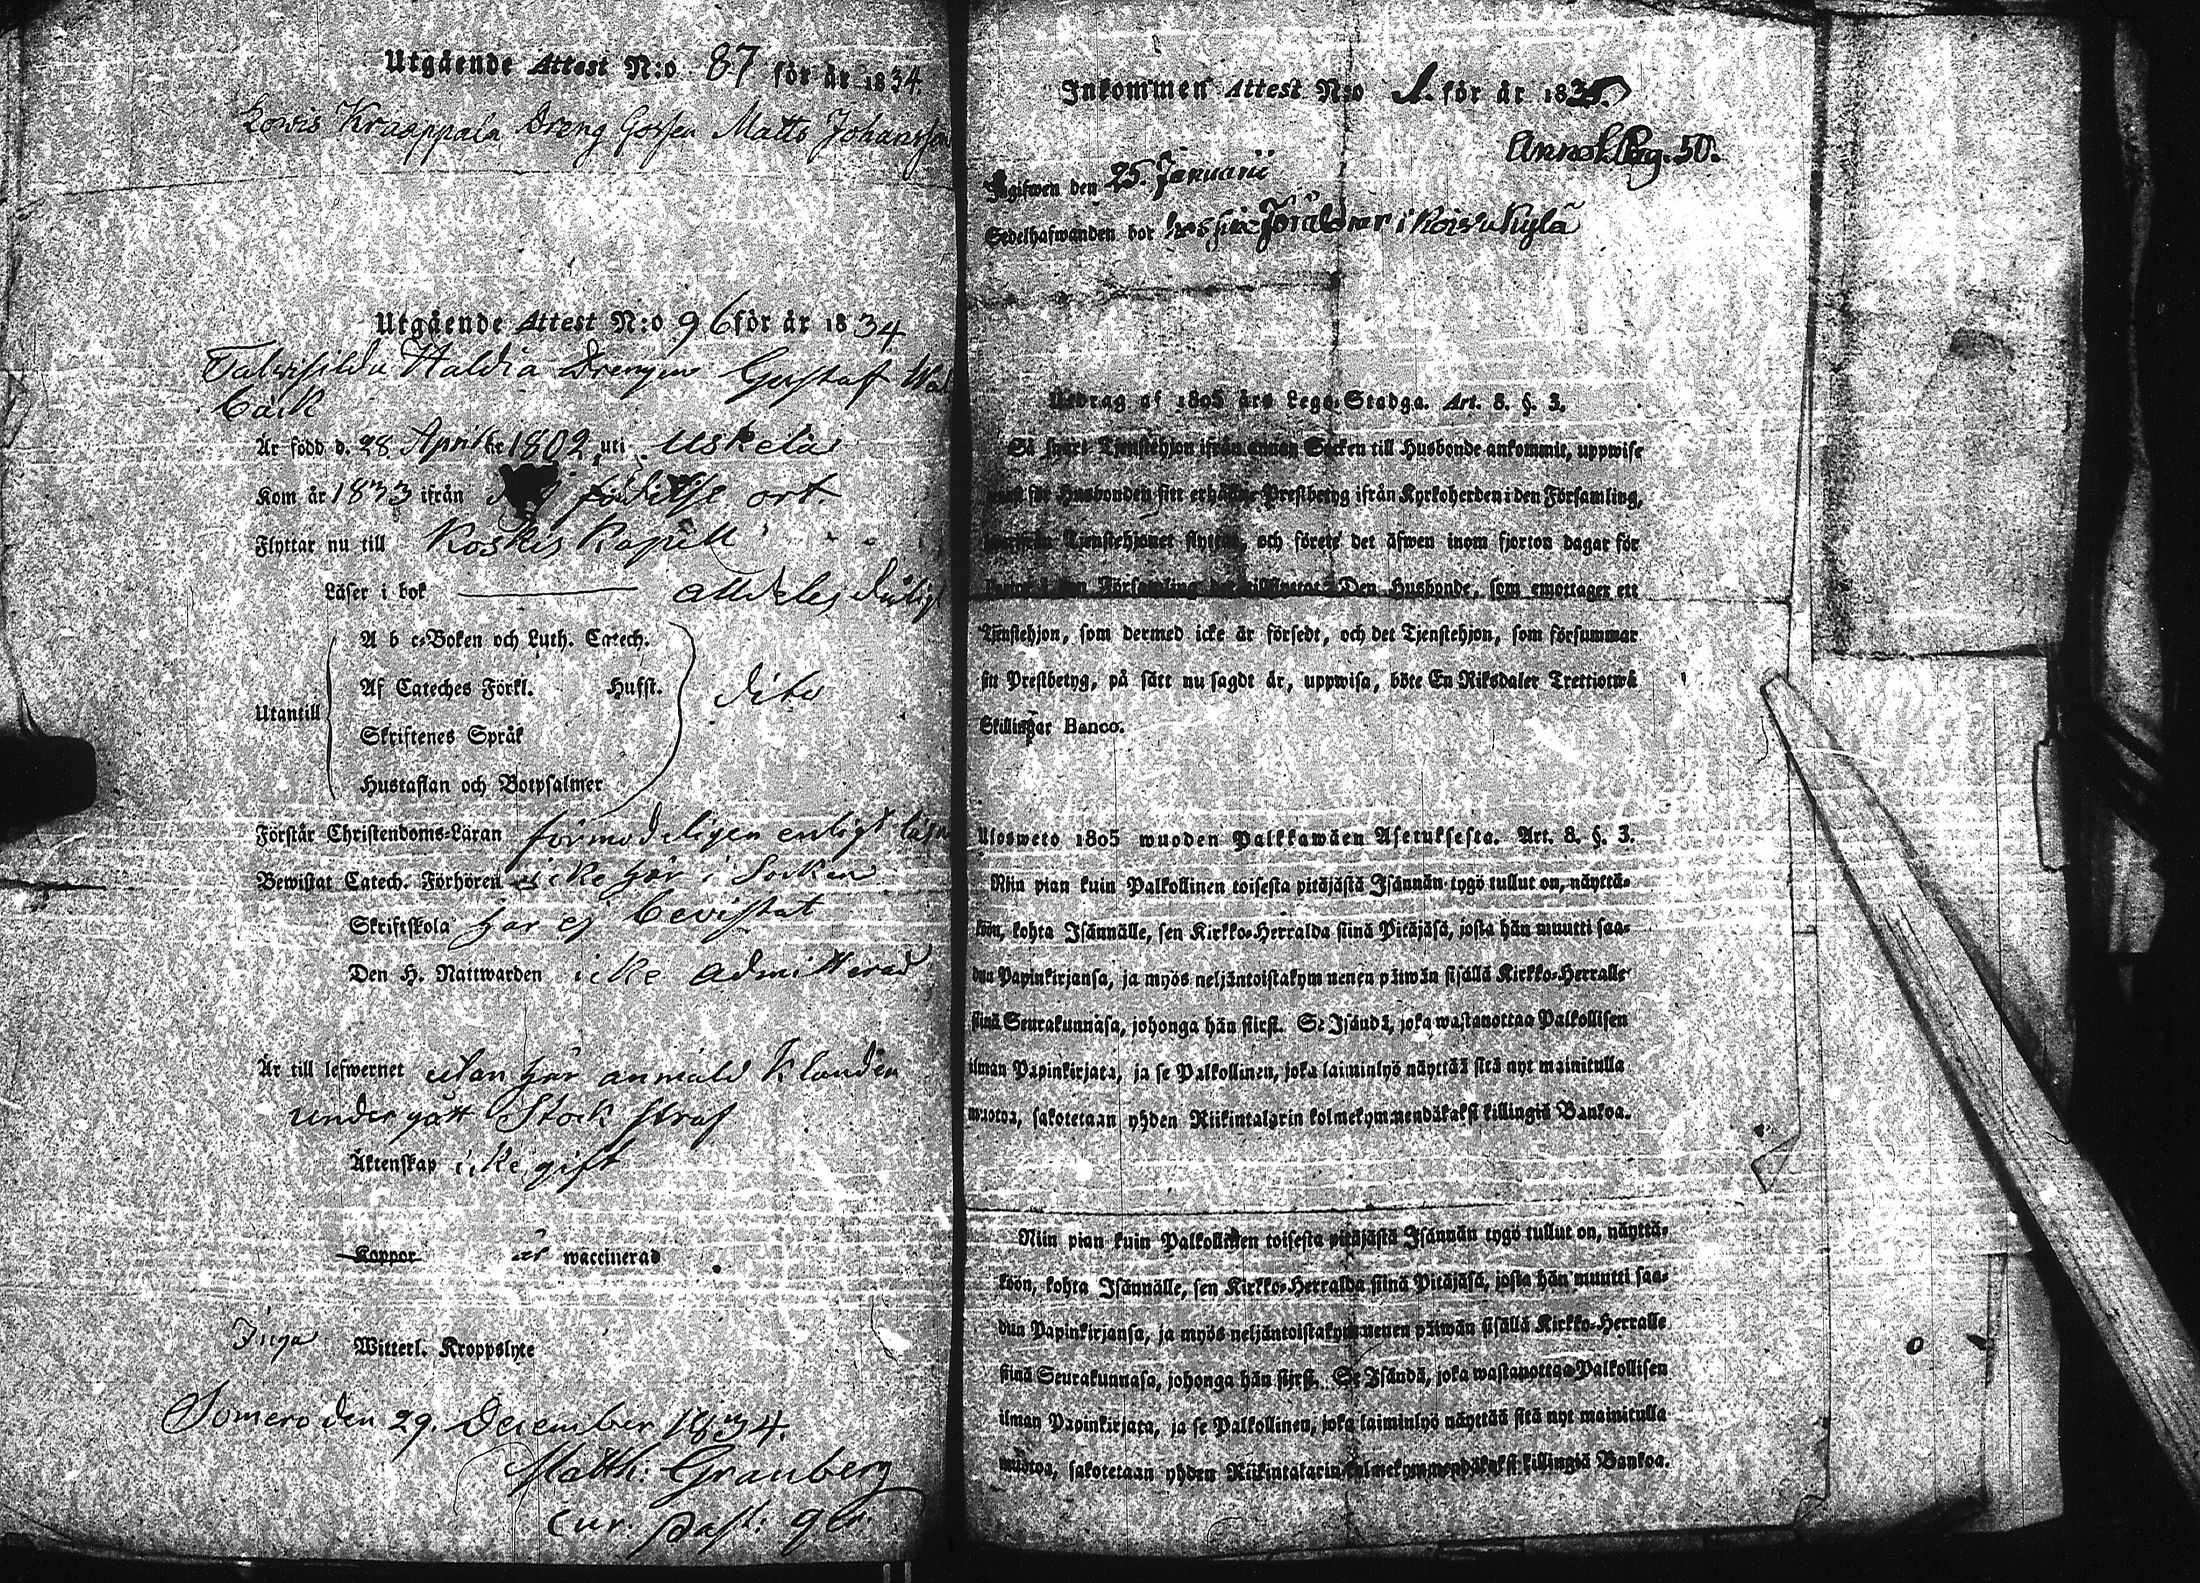 Utgående Attest N:o 87 för år 1834.
Kraappala Dräng Gossen Matts Johansson
Utgående Attest N:o 96 för år 1834
Haldia Drengen Gustaf
bäck
Är född d. 28 April år 1802 uti Uskela
Kom år 1833 ifrån födelse ort
Flyttar nu till Koskis Kapell
Läser i bok alldeles
A b c-Boken och Luth. Catech.
Af Cateches Förkl. Hufst.
dito
Utantill
Skriftenes Språk
Hustaflan och Botpsalmer
Förstår Christendoms-Läran förmodeligen enligt
Bewistat Catech. Förhören icke här i Socken
Skriftskola har ej bevistat
Den H. Nattwarden icke admitterad
Är till lefwernet utan här anmäld klander
undergått Stock straf
Äktenskap icke gift
Koppor är waccinerad
Inga Witterl. Kroppslyte
Somero den 29. December 1834.
Matth: Granberg
Cur. Past:
Inkommen Attest N:o 1. för år 1835.
Pag. 50.
Ingifwen den 25. Januarii
Sedelhafwanden bor hos sina Föräldrar i
Utdrag af 1805 års Lego-Stadga. Art. 8. §. 3.
Så snart Tjenstehjon ifrån annan Socken till Husbonde ankommit, uppwise
för Husbonden sitt erhållne Prestbetyg ifrån Kyrkoherden i den Församling,
Tjenstehjonet flyttat, och förete det äfwen inom fjorton dagar för
Församling Den Husbonde, som emottager ett
Tjenstehjon, som dermed icke är försedt, och det Tjenstehjon, som försummar
sitt Prestbetyg, på sätt nu sagdt är, uppwisa, böte En Riksdaler Trettiotwå
Skillingar Banco.
Ulosweto 1805 wuoden Palkkawäen Asetuksesta. Art. 8. §. 3.
Niin pian kuin Palkollinen toisesta pitäjästä Isännän tygö tullut on, näyttä-
köön, kohta Isännälle, sen Kirkko-Herralda siinä Pitäjäsä, josta hän muutti saa-
dun Papinkirjansa, ja myös neljäntoistakymmenen päiwän sisällä Kirkko-Herralle
siinä Seurakunnasa, johonga hän siirst. Se Isändä, joka wastanottaa Palkollisen
ilman Papinkirjata, ja se Palkollinen, joka laiminlyö näyttää sitä nyt mainitulla
muotoa, sakotetaan yhden Riikintalarin kolmekymmendäkaksi killingiä Bankoa.
Niin pian kuin Palkollinen toisesta pitäjästä Isännän tygö tullut on, näyttä-
köön, kohta Isännälle, sen Kirkko-Herralda siinä Pitäjäsä, josta hän muutti saa-
dun Papinkirjansa, ja myös neljäntoistakymmenen päiwän sisällä Kirkko-Herralle
siinä Seurakunnasa, johonga hän siirst. Se Isändä, joka wastanottaa Palkollisen
ilman Papinkirjata, ja se Palkollinen, joka laiminlyö näyttää sitä nyt mainitulla
muotoa, sakotetaan yhden Riikintalarin kolmekymmendäkaksi killingiä Bankoa.